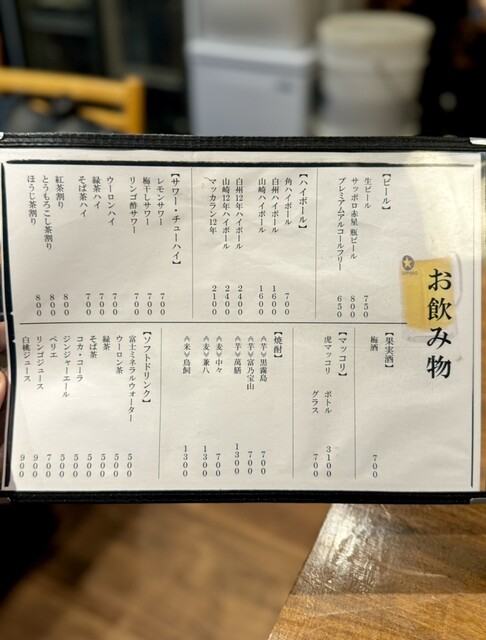 お飲み物
【ビール】
生ビール 750
サッポロ赤星 瓶ビール 850
プレミアムアルコールフリー 650
【ハイボール】
角ハイボール 700
白州ハイボール 1600
山崎ハイボール 1600
白州12年ハイボール 2400
山崎12年ハイボール 2400
マッカラン12年 2100
【サワー・チューハイ】
レモンサワー 700
梅干しサワー 700
リンゴ酢サワー 700
ウーロンハイ 700
緑茶ハイ 700
そば茶ハイ 700
紅茶割り 800
とうもろこし茶割り 800
ほうじ茶割り 800
【果実酒】
梅酒 700
【マッコリ】
虎マッコリ ボトル 3100
グラス 700
【焼酎】
《芋》黒霧島 700
《芋》富乃宝山 700
《芋》萬膳 1300
《麦》中々 700
《麦》兼八 1300
《米》鳥飼 1300
【ソフトドリンク】
富士ミネラルウォーター 500
ウーロン茶 500
緑茶 500
そば茶 500
コカ・コーラ 500
ジンジャーエール 500
ペリエ 700
リンゴジュース 900
白桃ジュース 900